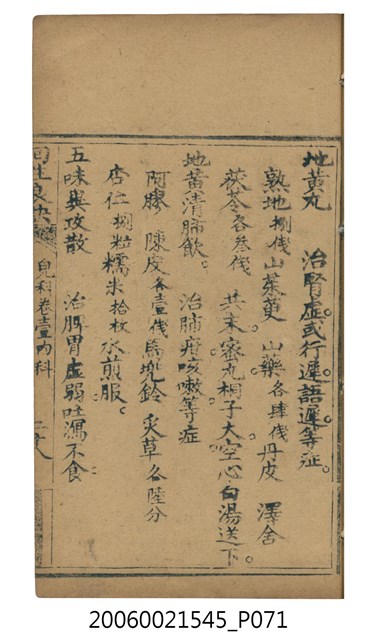 地黃丸　治腎虛或行遲語遲等症
熟地捌伐　山茱萸　山藥各肆伐丹皮　澤舍
茯苓各叁伐　共末蜜丸桐子大空心白湯送下
地黃清肺飲　治肺疳咳嗽等症
阿膠　陳皮各壹伐馬兜鈴　炙草各陸分
杏仁捌粒糯米拾枚水煎服
五味異攻散　治脾胃虛弱吐瀉不食
兒科卷壹內科
20060021545_P071